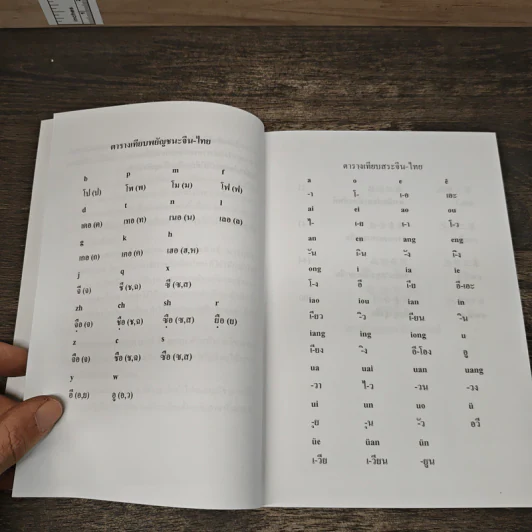 ตารางเทียบพยัญชนะจีน-ไทย
b p m f
โป (ป) โพ (พ) โม (ม) โฟ (ฟ)
d t n l
เตอ (ต) เทอ (ท) เนอ (น) เลอ (ล)
g k h
เกอ (ก) เคอ (ค) เฮอ (ฮ,ห)
j q x
จี (จ) ชี (ช,ฉ) ซี (ซ,ส)
zh ch sh r
จือ (จ) ชือ (ช,ฉ) ซือ (ซ,ส) ยือ (ย)
z c s
จือ (จ) ชือ (ช,ฉ) ซือ (ซ,ส)
y w
อี (อ,ย) อู (อ,ว)
ตารางเทียบสระจีน-ไทย
a o e ê
-า โ- เ-อ เอะ
ai ei ao ou
ไ- เ-ย เ-า โ-ว
an en ang eng
-ัน เ-ิน -ัง เ-ิง
ong i ia ie
โ-ง อี เ-ีย อี-เอะ
iao iou ian in
เ-ียว -ิว เ-ียน -ิน
iang ing iong u
เ-ียง -ิง อี-โอง อู
ua uai uan uang
-วา ไ-ว -วน -วง
ui un uo ü
-ุย -ุน -ัว อวี
üe üan ün
เ-วีย เ-วียน -ยูน